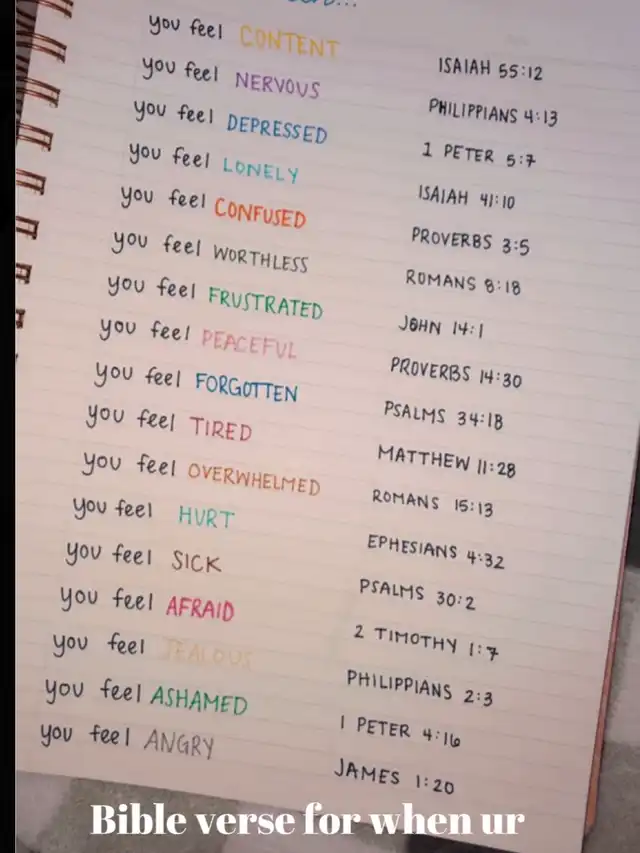 you feel CONTENT ISAIAH 55:12
you feel NERVOUS PHILIPPIANS 4:13
you feel DEPRESSED 1 PETER 5:7
you feel LONELY ISAIAH 41:10
you feel CONFUSED PROVERBS 3:5
you feel WORTHLESS ROMANS 8:18
you feel FRUSTRATED JOHN 14:1
you feel PEACEFUL PROVERBS 14:30
you feel FORGOTTEN PSALMS 34:18
you feel TIRED MATTHEW 11:28
you feel OVERWHELMED ROMANS 15:13
you feel HURT EPHESIANS 4:32
you feel SICK PSALMS 30:2
you feel AFRAID 2 TIMOTHY 1:7
you feel JEALOUS PHILIPPIANS 2:3
you feel ASHAMED 1 PETER 4:16
you feel ANGRY JAMES 1:20
Bible verse for when ur